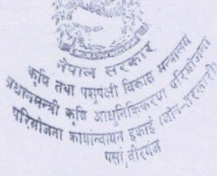 नेपाल सरकार
कृषि तथा पशुपंक्षी विकास मन्त्रालय
प्रधानमन्त्री कृषि आधुनिकिकरण परियोजना
परियोजना कार्यान्वयन इकाई
पर्सा वीरगंज